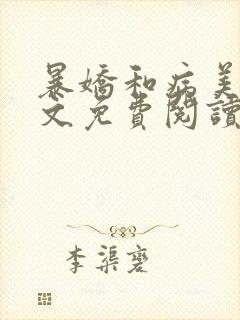 暴嬌和病美
文免費閱讀
李渠磬